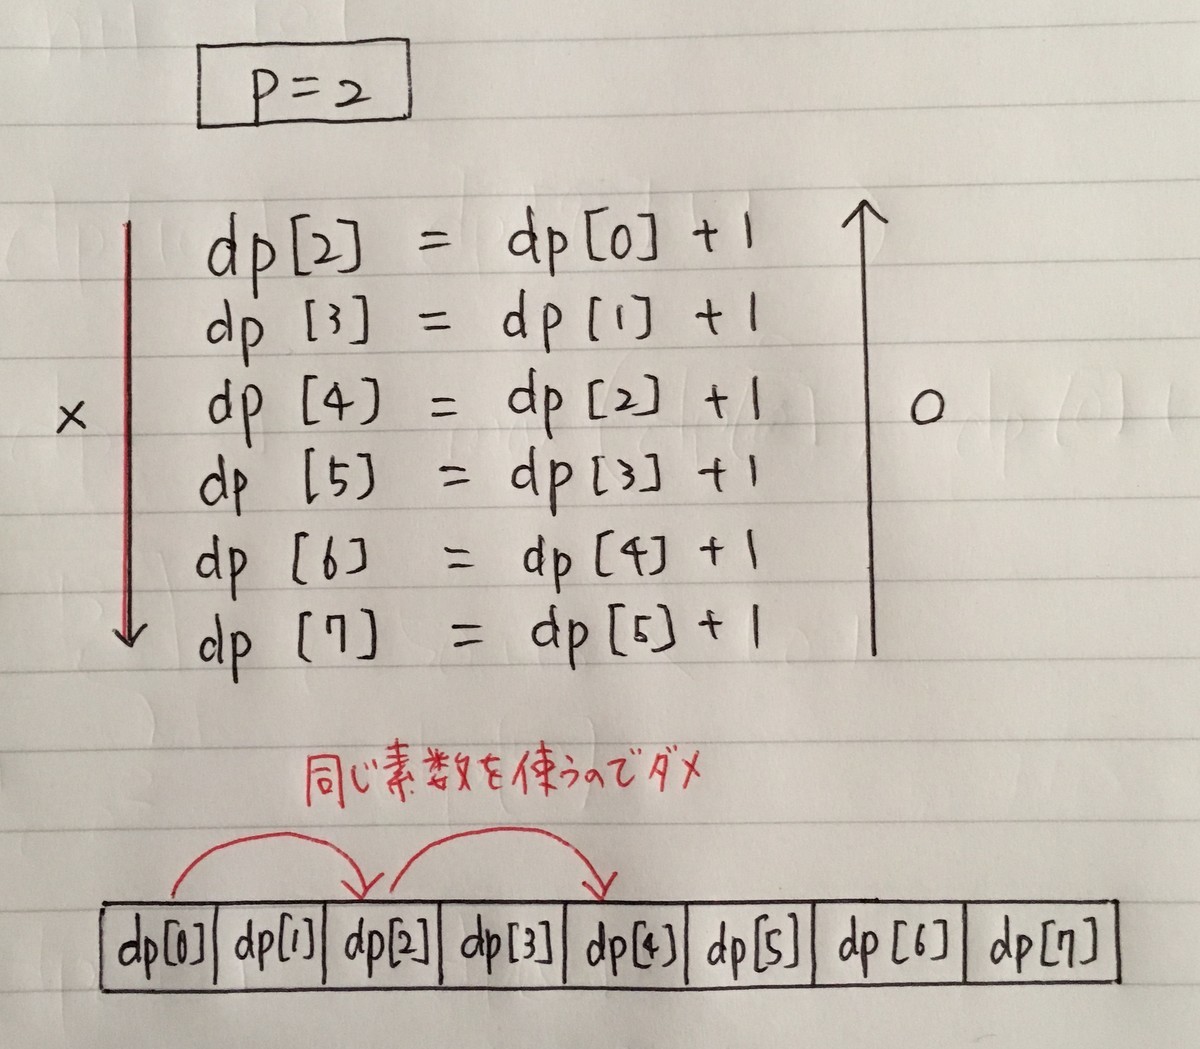 P=2
dp[2] = dp[0] + 1
dp [3] = dp [1] + 1
dp [4] = dp [2] + 1
× ○
dp [5] = dp [3] + 1
dp [6] = dp [4] + 1
dp [7] = dp [5] + 1
同じ素数を使うのでダメ
dp[0] dp[1] dp[2] dp[3] dp[4] dp[5] dp[6] dp[7]